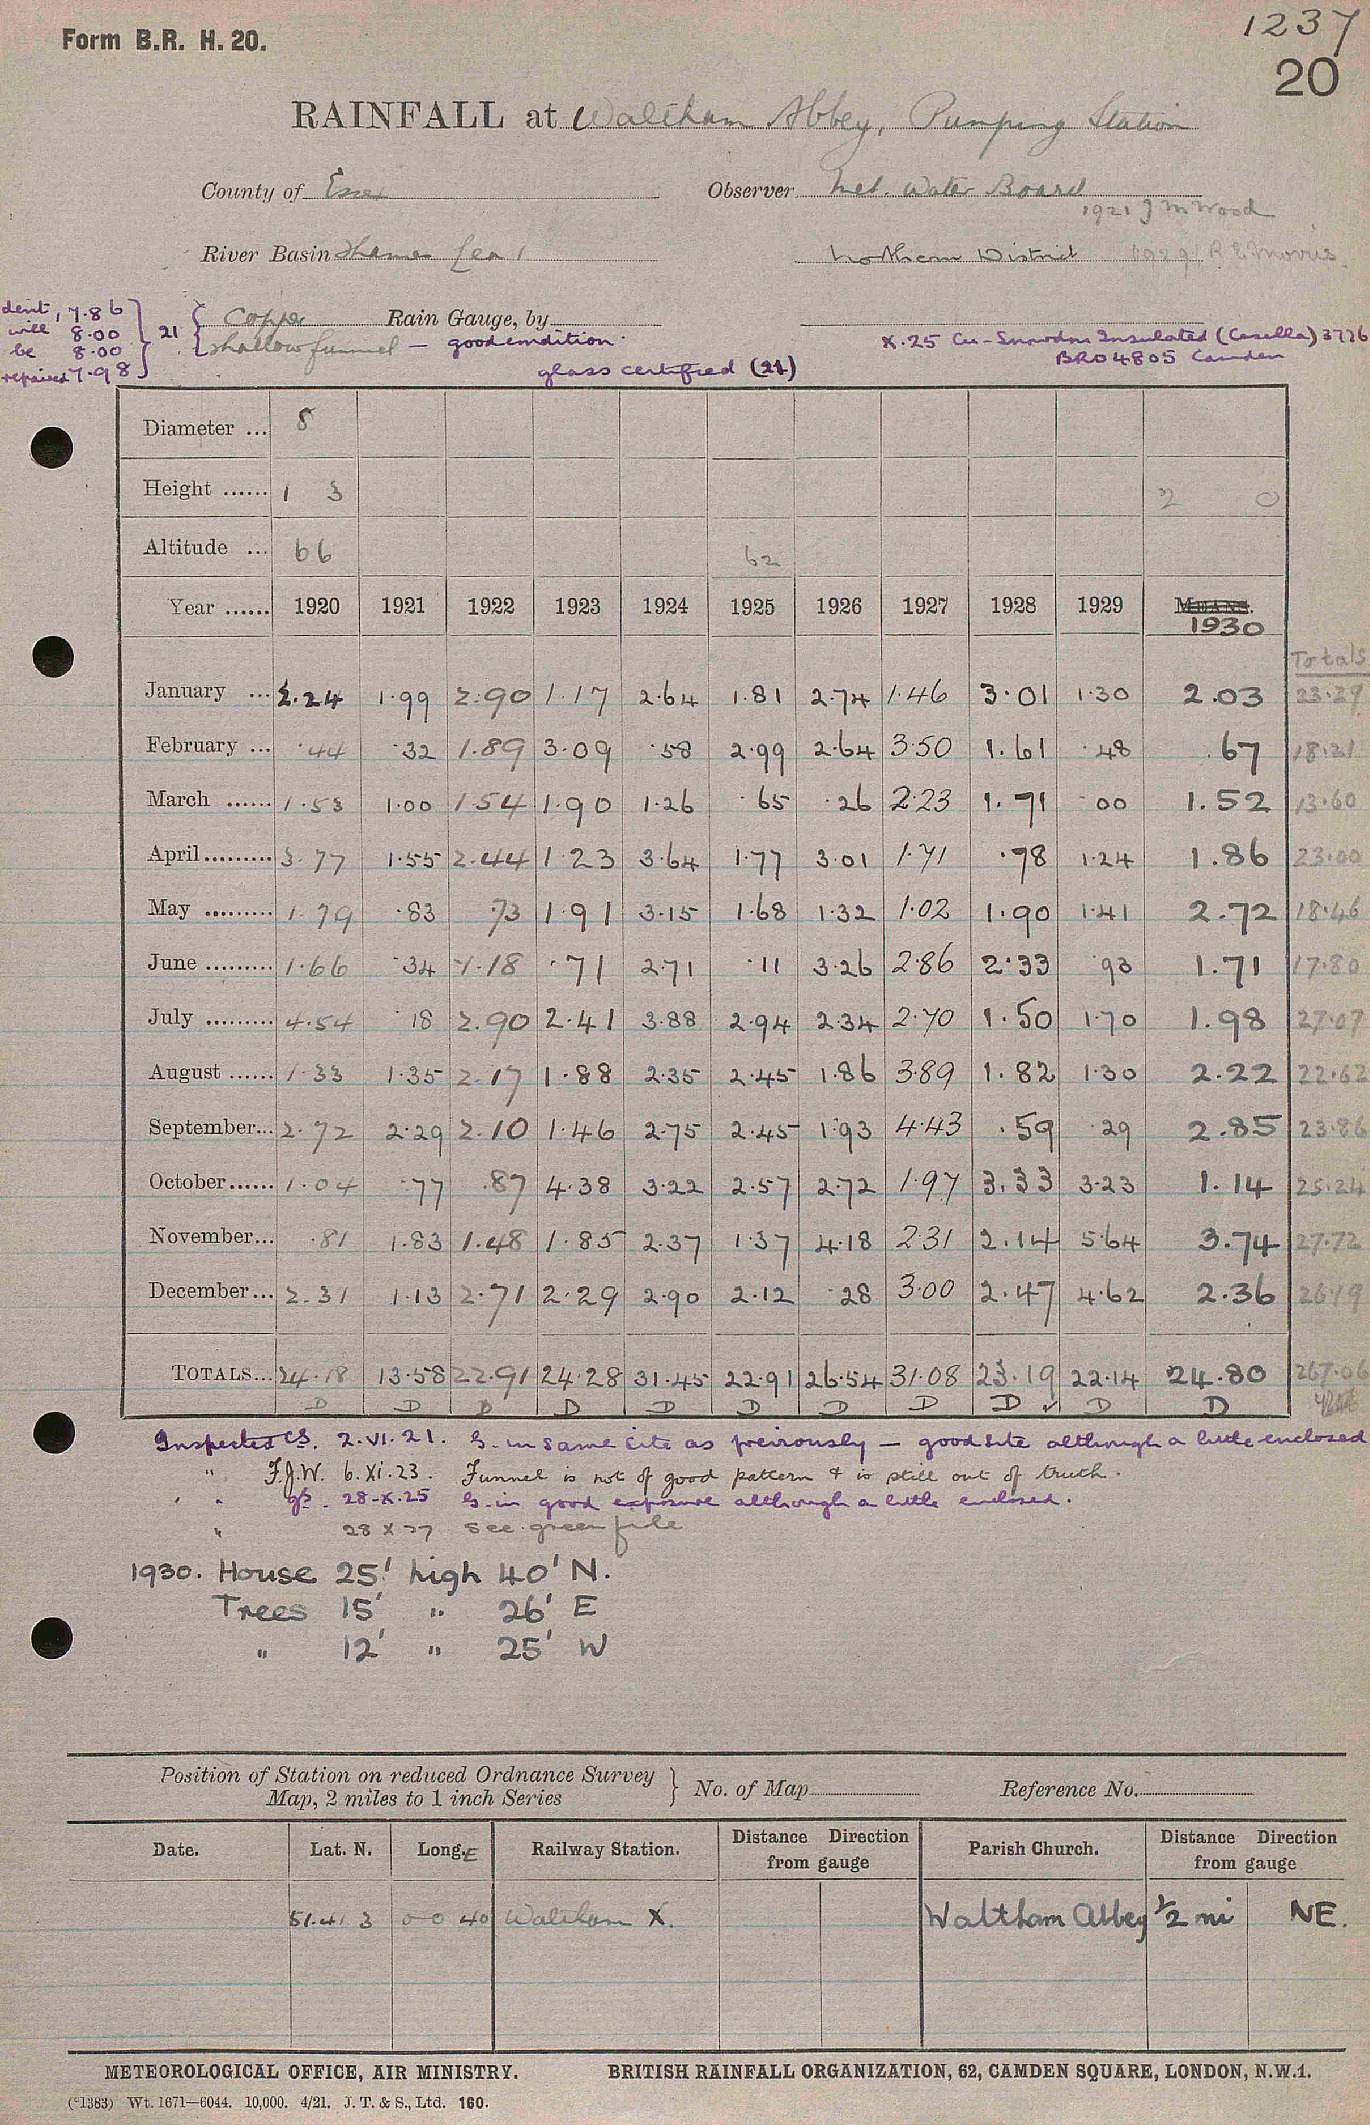 1237
Form B.R. H. 20.
20
RAINFALL at Waltham Abbey, Pumping Station
County of Essex Observer Met. Water Board
1921 J M Wood
River Basin Thames (Lea) Northern District 1929 R E Morris
dent, 7.86
will 8.00
be 8.00
repaired 7.98
21
Copper Rain Gauge, by
shallow funnel — good condition.
X.25 Cu-Snowdon Insulated (Casella) 3776
BRO 4805 Camden
glass certified (21)
Diameter ... 8
Height ...... 1 3 2 0
Altitude ... 66 62
Year ...... 1920 1921 1922 1923 1924 1925 1926 1927 1928 1929 MEANS. 1930
Totals
January ... 2.24 1.99 2.90 1.17 2.64 1.81 2.74 1.46 3.01 1.30 2.03 23.29
February ... .44 .32 1.89 3.09 .58 2.99 2.64 3.50 1.61 .48 .67 18.21
March ...... 1.53 1.00 1.54 1.90 1.26 .65 .26 2.23 1.71 .00 1.52 13.60
April ......... 3.77 1.55 2.44 1.23 3.64 1.77 3.01 1.71 .78 1.24 1.86 23.00
May ......... 1.79 .83 .73 1.91 3.15 1.68 1.32 1.02 1.90 1.41 2.72 18.46
June ......... 1.66 .34 1.18 .71 2.71 .11 3.26 2.86 2.33 .93 1.71 17.80
July ......... 4.54 .18 2.90 2.41 3.88 2.94 2.34 2.70 1.50 1.70 1.98 27.07
August ...... 1.33 1.35 2.17 1.88 2.35 2.45 1.86 3.89 1.82 1.30 2.22 22.62
September... 2.72 2.29 2.10 1.46 2.75 2.45 1.93 4.43 .59 .29 2.85 23.86
October...... 1.04 .77 .87 4.38 3.22 2.57 2.72 1.97 3.33 3.23 1.14 25.24
November... .81 1.83 1.48 1.85 2.37 1.37 4.18 2.31 2.14 5.64 3.74 27.72
December... 2.31 1.13 2.71 2.29 2.90 2.12 .28 3.00 2.47 4.62 2.36 26.19
TOTALS... 24.18 13.58 22.91 24.28 31.45 22.91 26.54 31.08 23.19 22.14 24.80 267.06
D D D D D D D D D ✓ D D
Inspected CS. 2.VI.21. G. in same site as previously — good site although a little enclosed
" F.J.W. 6.XI.23. Funnel is not of good pattern & is still out of truth.
" " 28-X-25 G. in good exposure although a little enclosed.
" 28 X 27 see green file
1930. House 25' high 40' N.
Trees 15' " 26' E
" 12' " 25' W
Position of Station on reduced Ordnance Survey
Map, 2 miles to 1 inch Series
No. of Map Reference No.
Date. Lat. N. Long. E Railway Station. Distance Direction from gauge Parish Church. Distance Direction from gauge
51.41 3 0-0 40 Waltham X. Waltham Abbey 1/2 mi NE.
METEOROLOGICAL OFFICE, AIR MINISTRY. BRITISH RAINFALL ORGANIZATION, 62, CAMDEN SQUARE, LONDON, N.W.1.
(*1383) Wt. 1671—6044. 10,000. 4/21. J. T. & S., Ltd. 160.